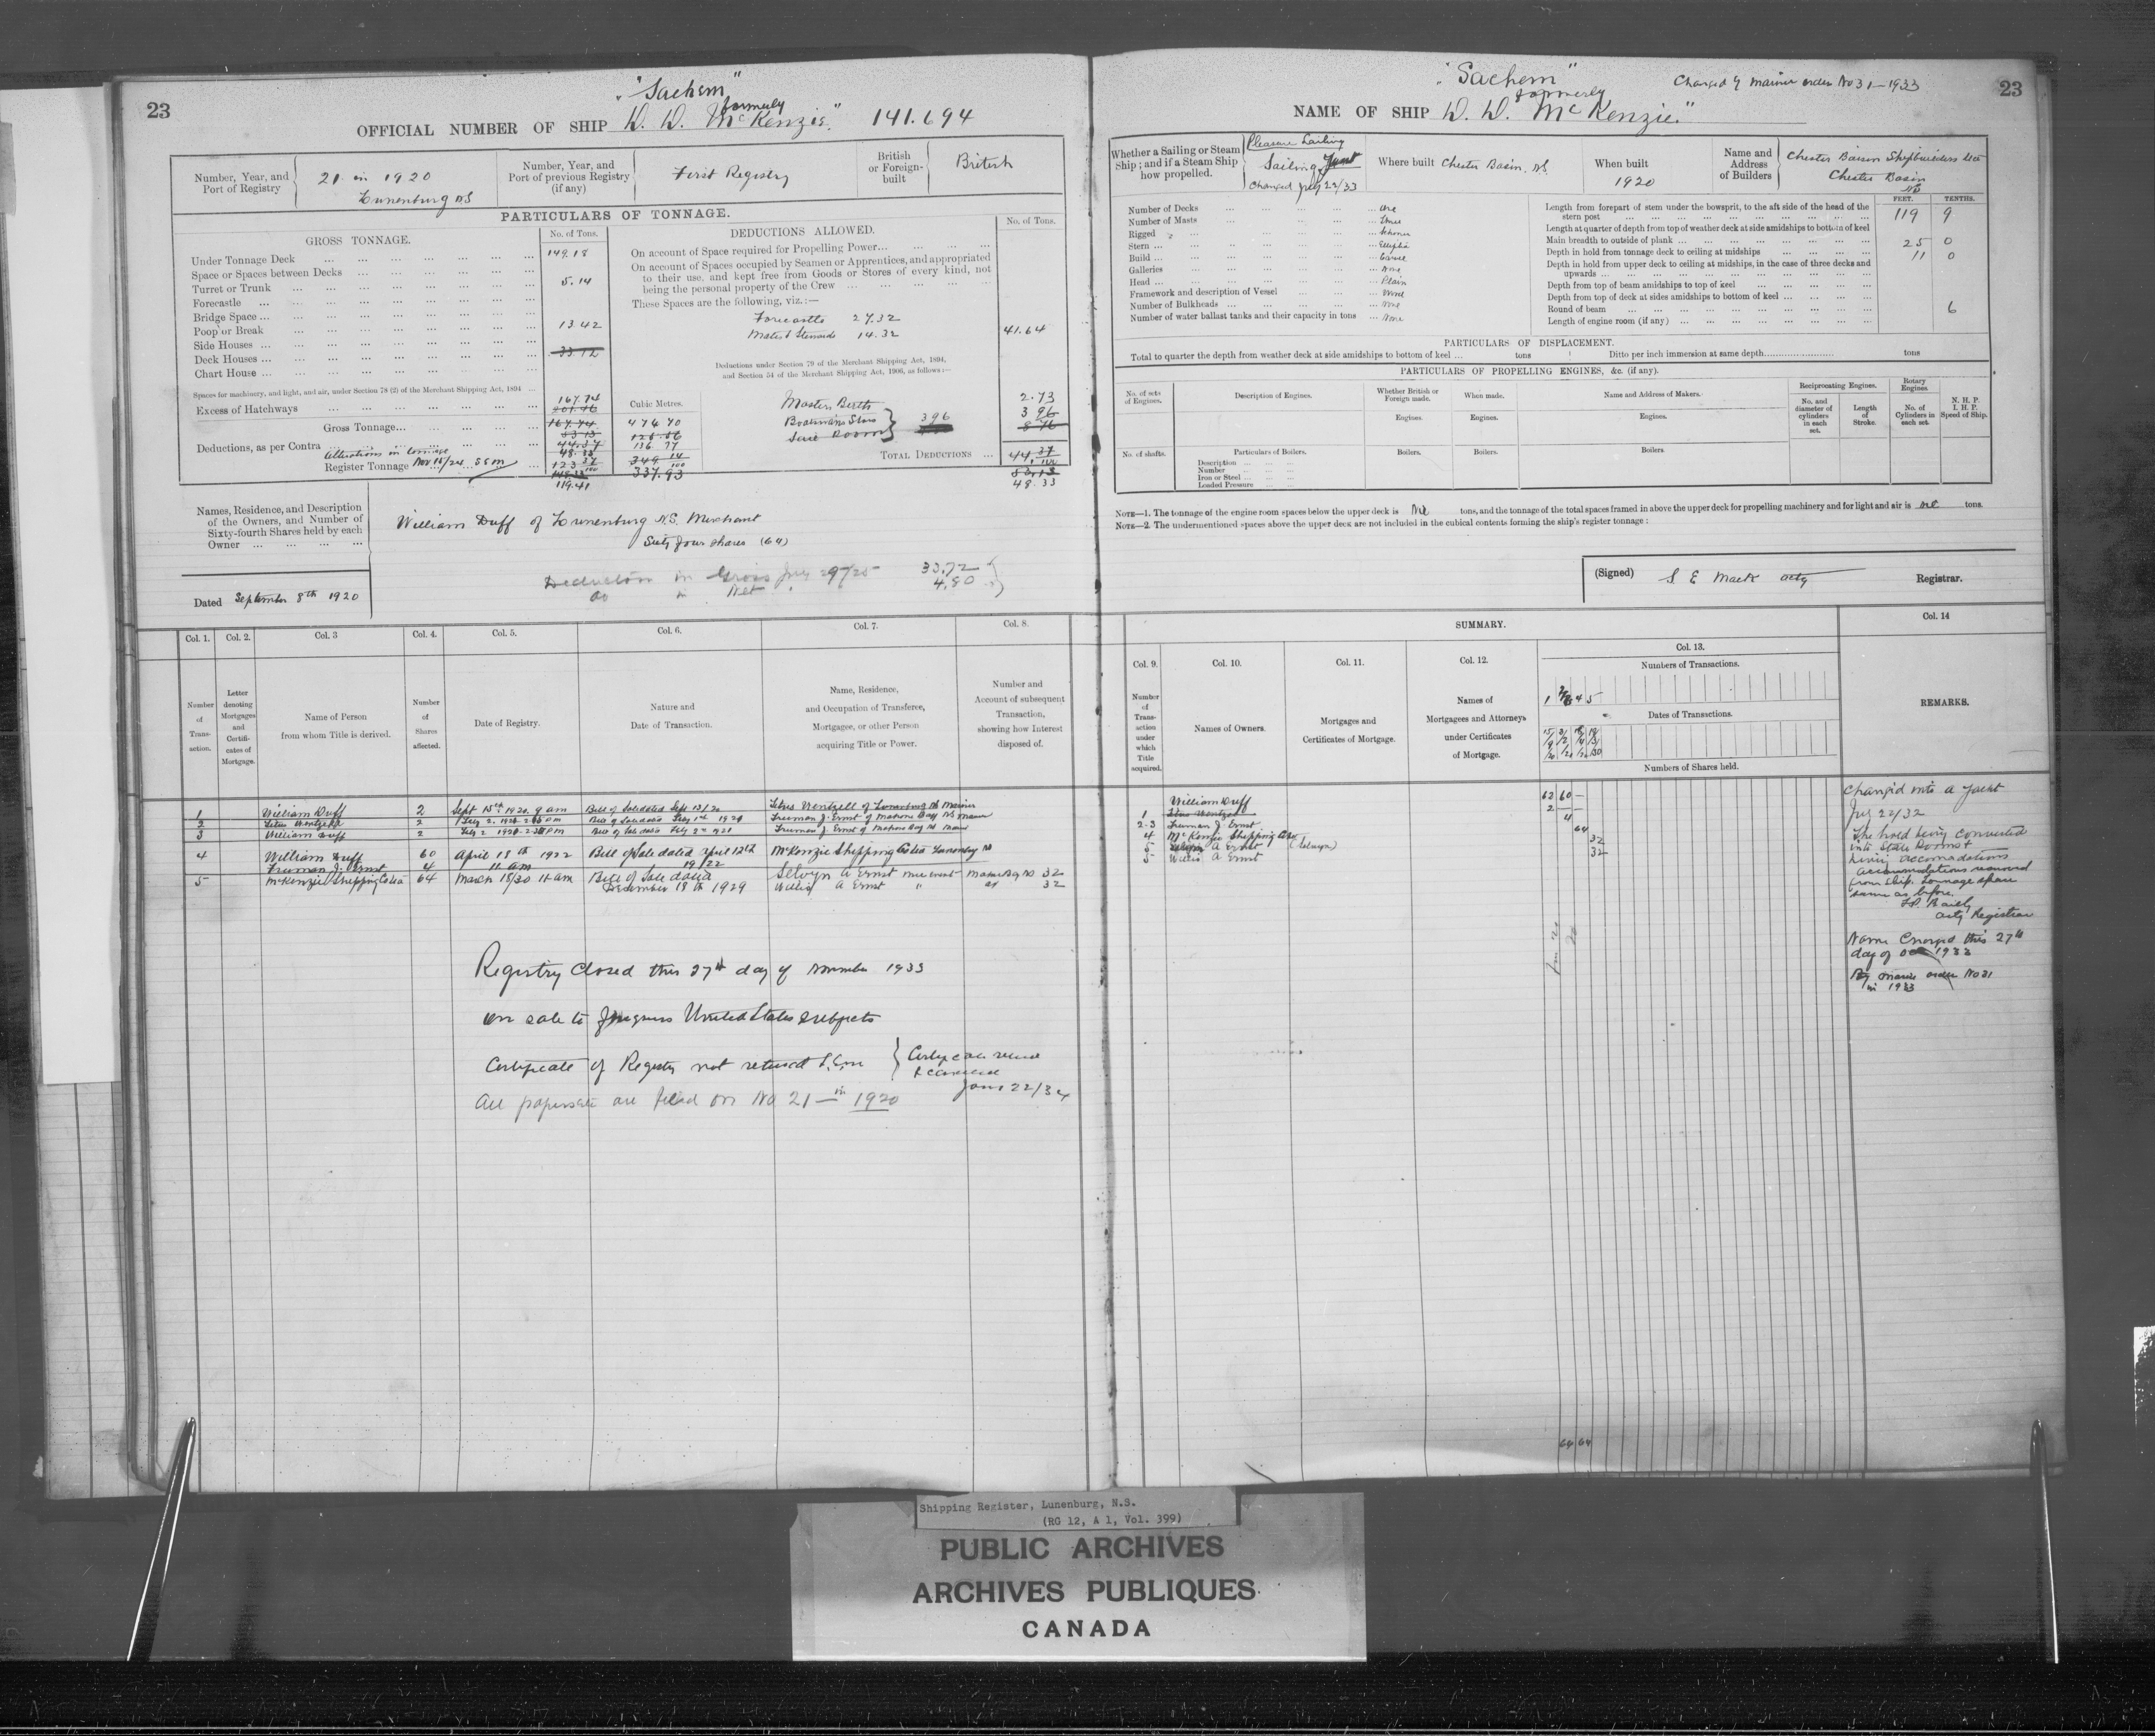 23
"Sachem"
formerly
OFFICIAL NUMBER OF SHIP D. D. McKenzie." 141.694
Number, Year, and Port of Registry
21 in 1920
Lunenburg NS
Number, Year, and Port of previous Registry (if any)
First Registry
British or Foreign-built
British
PARTICULARS OF TONNAGE.
GROSS TONNAGE.
No. of Tons.
Under Tonnage Deck 149.18
Space or Spaces between Decks
Turret or Trunk 5.14
Forecastle
Bridge Space
Poop or Break 13.42
Side Houses
Deck Houses 33.72
Chart House
Spaces for machinery, and light, and air, under Section 78 (2) of the Merchant Shipping Act, 1894
Excess of Hatchways
167.74
201.46
Cubic Metres.
Gross Tonnage 167.74 474 70
Deductions, as per Contra 53 13
44.37 136 77
48.33
Alterations in tonnage
Register Tonnage Nov 15/24 SEM 123 37 349 14
119.41 337.93
DEDUCTIONS ALLOWED.
No. of Tons.
On account of Space required for Propelling Power
On account of Spaces occupied by Seamen or Apprentices, and appropriated to their use, and kept free from Goods or Stores of every kind, not being the personal property of the Crew
These Spaces are the following, viz.:—
Forecastle 27.32
Mates & Stewards 14.32
41.64
Deductions under Section 79 of the Merchant Shipping Act, 1894,
and Section 54 of the Merchant Shipping Act, 1906, as follows:—
Masters Berth 2.73
Boatswains Stores 3 96 3 96
Sail Room
TOTAL DEDUCTIONS 44 37
53.13
48.33
Names, Residence, and Description
of the Owners, and Number of
Sixty-fourth Shares held by each
Owner
William Duff of Lunenburg N.S. Merchant
Sixty four shares (64)
Deduction in Gross July 29/25 33.72
do in Net 4.80
Dated September 8th 1920
Col. 1.
Col. 2.
Col. 3
Col. 4.
Col. 5.
Col. 6.
Col. 7.
Col. 8.
Number of Trans-action.
Letter denoting Mortgages and Certifi-cates of Mortgage.
Name of Person
from whom Title is derived.
Number of Shares affected.
Date of Registry.
Nature and
Date of Transaction.
Name, Residence,
and Occupation of Transferee,
Mortgagee, or other Person
acquiring Title or Power.
Number and
Account of subsequent
Transaction,
showing how Interest
disposed of.
1 William Duff 2 Sept 15th 1920 9 am Bill of Sale dated Sept 13/20 Titus Wentzell of Lunenburg NS Mariner
2 Titus Wentzell 2 Bill of Sale dated Feby 1st 1921 Freeman J. Ernst of Mahone Bay NS Mariner
3 William Duff 2 Bill of Sale dated Feby 2nd 1921 Freeman J. Ernst of Mahone Bay NS Mariner
4 William Duff 60 April 18th 1922 Bill of Sale dated April 12th McKenzie Shipping Co Ltd Lunenburg NS
Freeman J. Ernst 4 11 am 19/22
5 McKenzie Shipping Co Ltd 64 March 18/30 11 am Bill of Sale dated Selwyn A Ernst Merchant Mahone Bay NS 32
December 18th 1929 Willis A Ernst " do 32
Registry Closed this 27th day of November 1933
on sale to foreigners United States subjects
Certificate of Registry not returned
Jany 22/34
All papers are filed on No 21 in 1920
23
"Sachem"
Changed by Marine order No 31–1933
formerly
NAME OF SHIP D. D. McKenzie."
Whether a Sailing or Steam Ship; and if a Steam Ship how propelled.
Pleasure Sailing
Sailing Yacht
Changed July 22/33
Where built Chester Basin. NS.
When built
1920
Name and Address of Builders
Chester Basin Shipbuilders Ltd
Chester Basin
NS
Number of Decks One
Number of Masts Three
Rigged Schooner
Stern Elliptic
Build Carvel
Galleries None
Head Plain
Framework and description of Vessel Wood
Number of Bulkheads None
Number of water ballast tanks and their capacity in tons None
FEET. TENTHS.
Length from forepart of stem under the bowsprit, to the aft side of the head of the stern post 119 9
Length at quarter of depth from top of weather deck at side amidships to bottom of keel
Main breadth to outside of plank 25 0
Depth in hold from tonnage deck to ceiling at midships 11 0
Depth in hold from upper deck to ceiling at midships, in the case of three decks and upwards
Depth from top of beam amidships to top of keel
Depth from top of deck at sides amidships to bottom of keel
Round of beam 6
Length of engine room (if any)
PARTICULARS OF DISPLACEMENT.
Total to quarter the depth from weather deck at side amidships to bottom of keel ... tons
Ditto per inch immersion at same depth tons
PARTICULARS OF PROPELLING ENGINES, &c. (if any).
No. of sets of Engines.
Description of Engines.
Whether British or Foreign made.
When made.
Name and Address of Makers.
Reciprocating Engines.
Rotary Engines
N. H. P.
I. H. P.
Speed of Ship.
No. and diameter of cylinders in each set.
Length of Stroke.
No. of Cylinders in each set.
Engines.
Engines.
Engines.
No. of shafts.
Particulars of Boilers.
Boilers.
Boilers.
Boilers.
Description
Number
Iron or Steel
Loaded Pressure
NOTE—1. The tonnage of the engine room spaces below the upper deck is Nil tons, and the tonnage of the total spaces framed in above the upper deck for propelling machinery and for light and air is nil tons.
NOTE—2. The undermentioned spaces above the upper deck are not included in the cubical contents forming the ship's register tonnage:
(Signed) S E Mack actg Registrar.
SUMMARY.
Col. 9.
Col. 10.
Col. 11.
Col. 12.
Col. 13.
Col. 14
Number of Trans-action under which Title acquired.
Names of Owners.
Mortgages and
Certificates of Mortgage.
Names of
Mortgagees and Attorneys
under Certificates
of Mortgage.
Numbers of Transactions.
Dates of Transactions.
Numbers of Shares held.
REMARKS.
William Duff 62 60
1 Titus Wentzell 2
2-3 Freeman J Ernst 4
4 McKenzie Shipping Co 64
5 Selwyn A Ernst (Selwyn) 32
5 Willis A Ernst 32
64 64
Changed into a Yacht
July 22/32
The hold being converted
into State Rooms &
living accomadations
accommodations removed
from ship. Tonnage space
same as before.
Actg Registrar
Name Changed this 27th
day of Oct 1933
By marine order No 31
in 1933
Shipping Register, Lunenburg, N.S.
(RG 12, A 1, Vol. 399)
PUBLIC ARCHIVES
ARCHIVES PUBLIQUES
CANADA